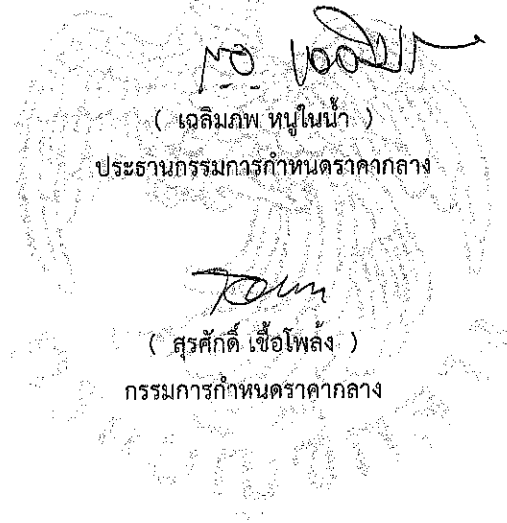 ( เฉลิมภพ หนูในน้ำ )
ประธานกรรมการกำหนดราคากลาง
( สุรศักดิ์ เชื้อโพล้ง )
กรรมการกำหนดราคากลาง